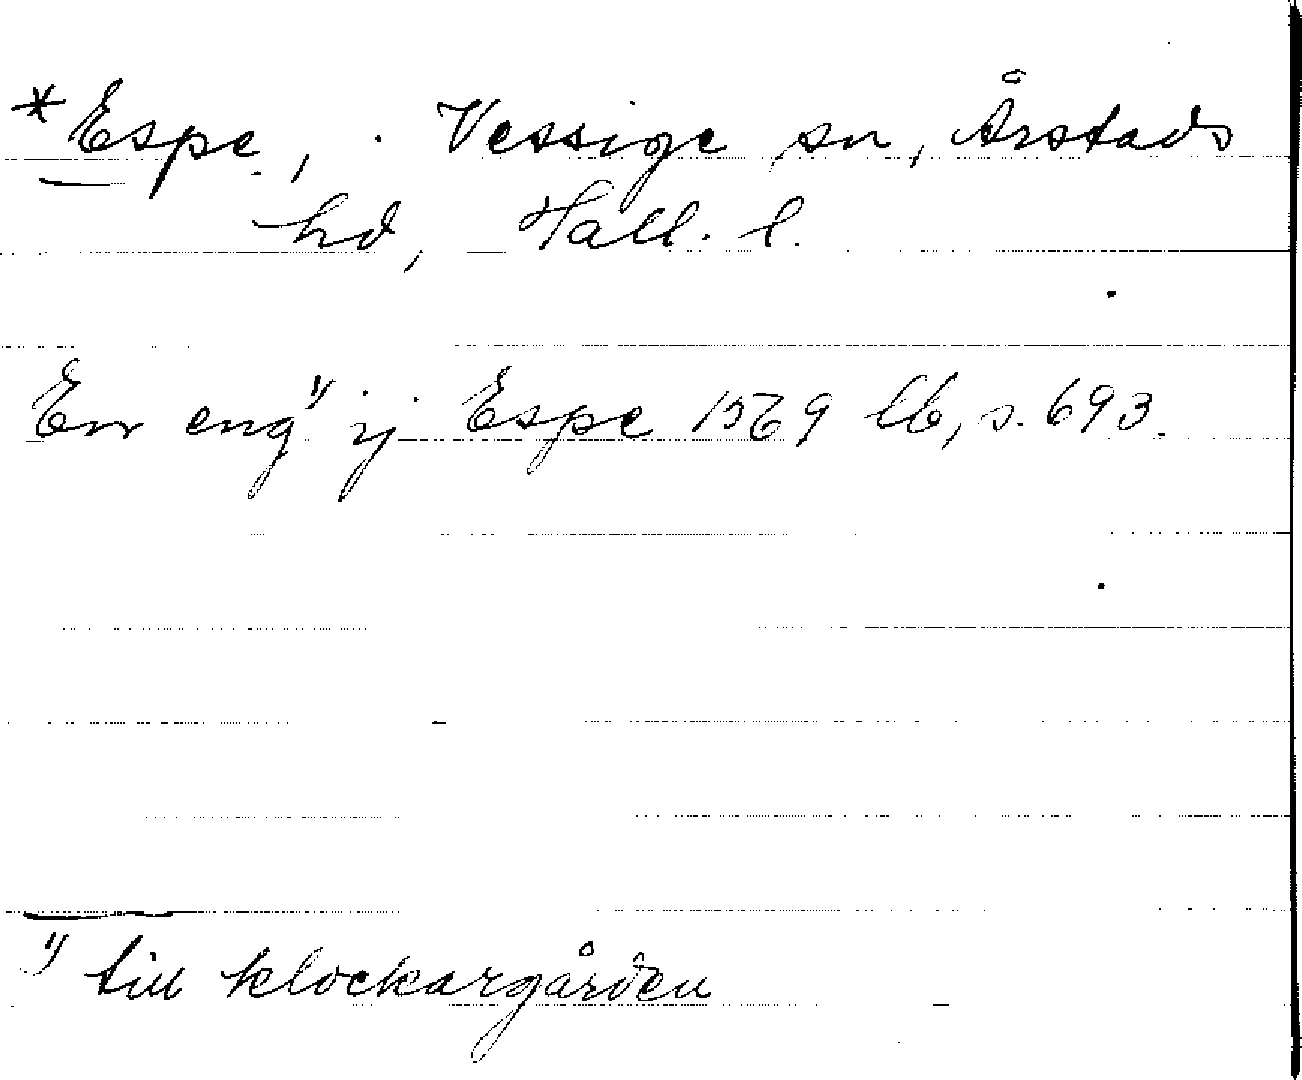 *Espe, Vessige sn, Årstads
hd, Hall. l.
En eng¹⁾ ij Espe 1569 lb, s. 693.
¹⁾ till klockargården